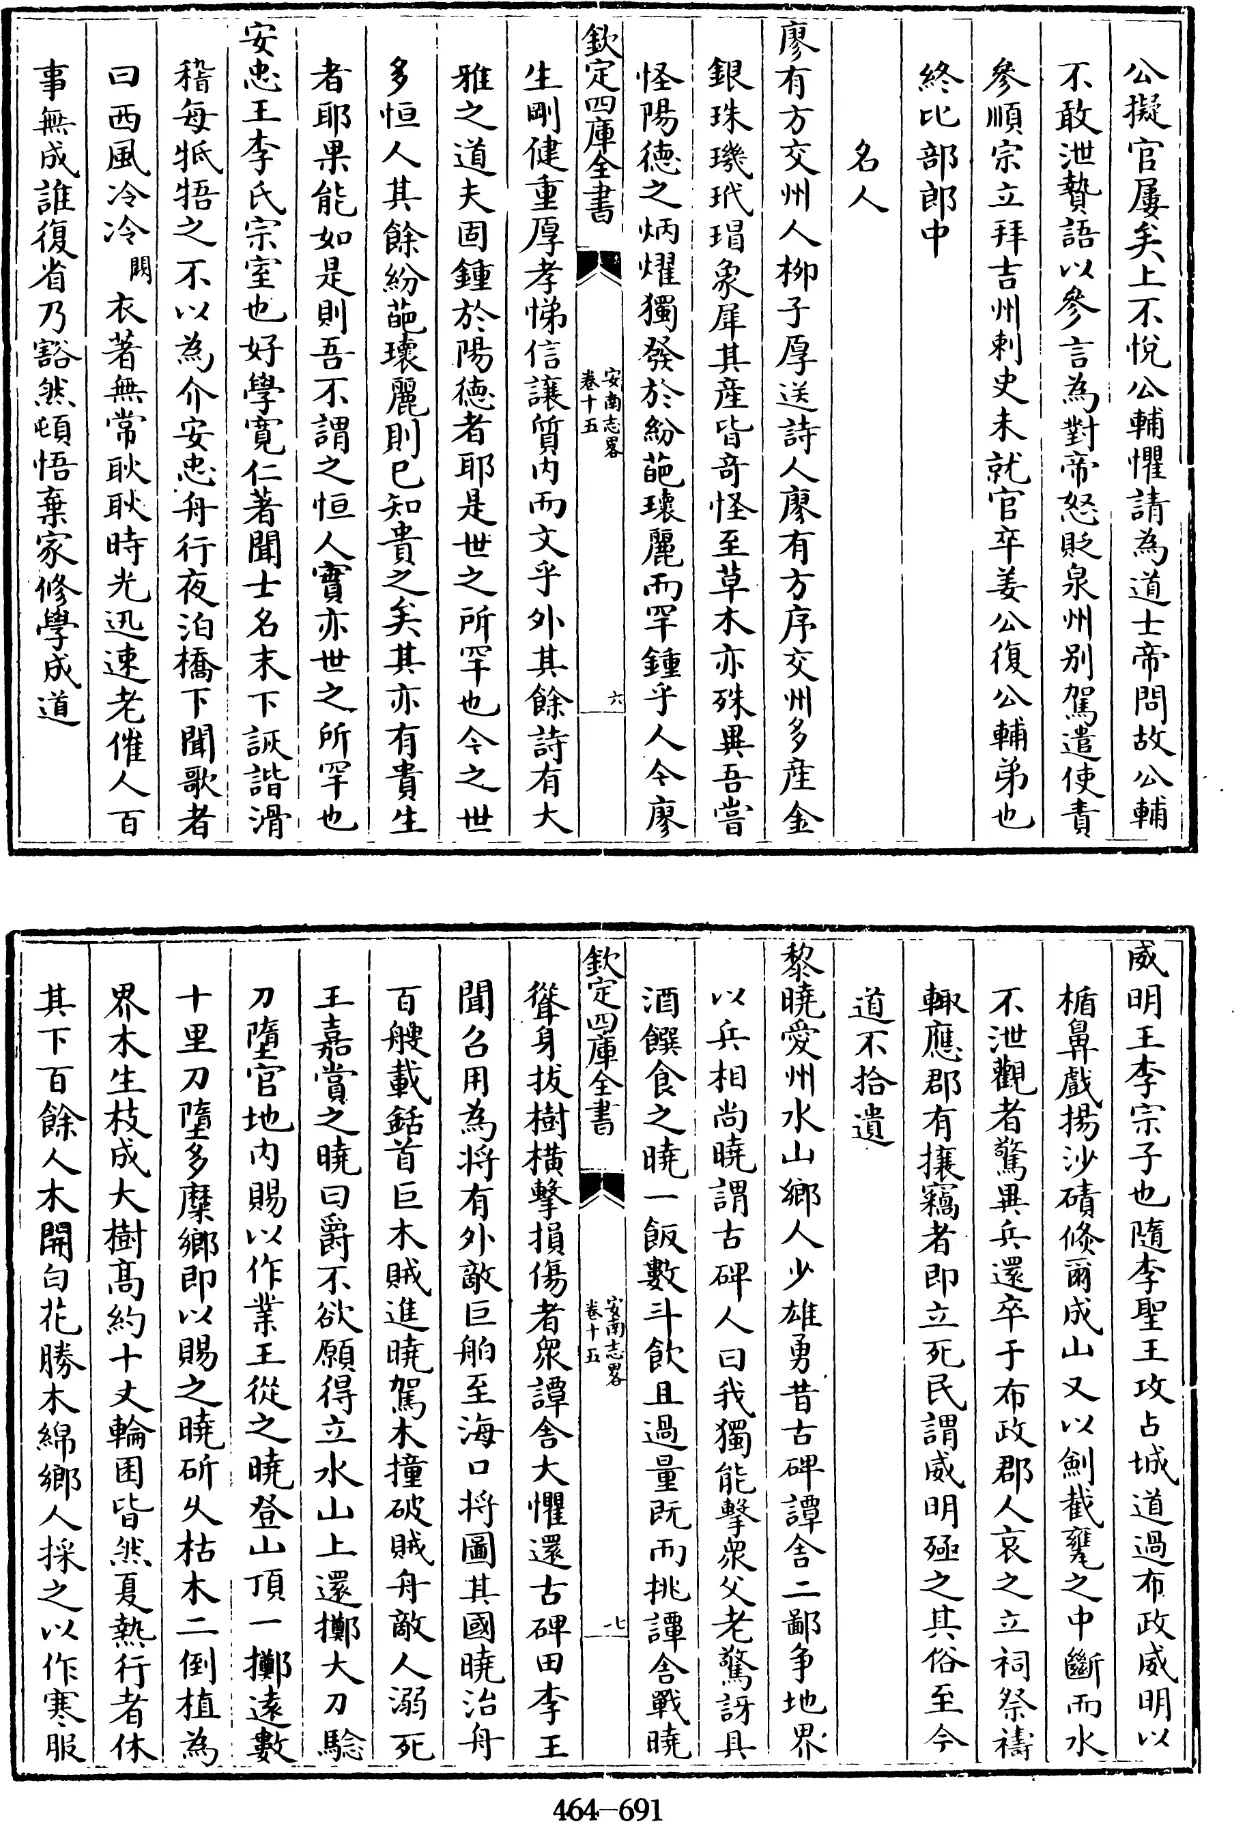 公擬官屢矣上不悅公輔懼請為道士帝問故公輔
不敢泄贄語以參言為對帝怒貶泉州别駕遣使責
參順宗立拜吉州刺史未就官卒姜公復公輔弟也
終比部郎中
名人
廖有方交州人柳子厚送詩人廖有方序交州多産金
銀珠璣玳瑁象犀其産皆竒怪至草木亦殊異吾嘗
怪陽德之炳燿獨發於紛葩瓌麗而罕鍾乎人今廖
欽定四庫全書
安南志畧
卷十五
六
生剛健重厚孝悌信讓質内而文乎外其餘詩有大
雅之道夫固鍾於陽德者耶是世之所罕也今之世
多恒人其餘紛葩瓌麗則已知貴之矣其亦有貴生
者耶果能如是則吾不謂之恒人實亦世之所罕也
安忠王李氏宗室也好學寛仁著聞士名末下詼諧滑
稽每牴牾之不以為介安忠舟行夜泊橋下聞歌者
曰西風冷冷闕衣著無常耿耿時光迅速老催人百
事無成誰復省乃豁然頓悟棄家修學成道
威明王李宗子也隨李聖王攻占城道過布政威明以
楯鼻戲揚沙磧倐爾成山又以劍截甕之中斷而水
不泄觀者驚異兵還卒于布政郡人哀之立祠祭禱
輙應郡有攘竊者即立死民謂威明殛之其俗至今
道不拾遺
黎曉愛州水山鄉人少雄勇昔古碑譚舍二鄙争地界
以兵相尚曉謂古碑人曰我獨能擊衆父老驚訝具
酒饌食之曉一飯數斗飲且過量既而挑譚舍戰曉
欽定四庫全書
安南志畧
卷十五
七
聳身拔樹横擊損傷者衆譚舍大懼還古碑田李王
聞召用為將有外敵巨舶至海口將圖其國曉治舟
百艘載銛首巨木賊進曉駕木撞破賊舟敵人溺死
王嘉賞之曉曰爵不欲願得立水山上還擲大刀驗
刀墮官地内賜以作業王從之曉登山頂一擲逺數
十里刀墮多糜鄉即以賜之曉斫火枯木二倒植為
界木生枝成大樹髙約十丈輪囷皆然夏熱行者休
其下百餘人木開白花勝木綿鄉人採之以作寒服
464-691